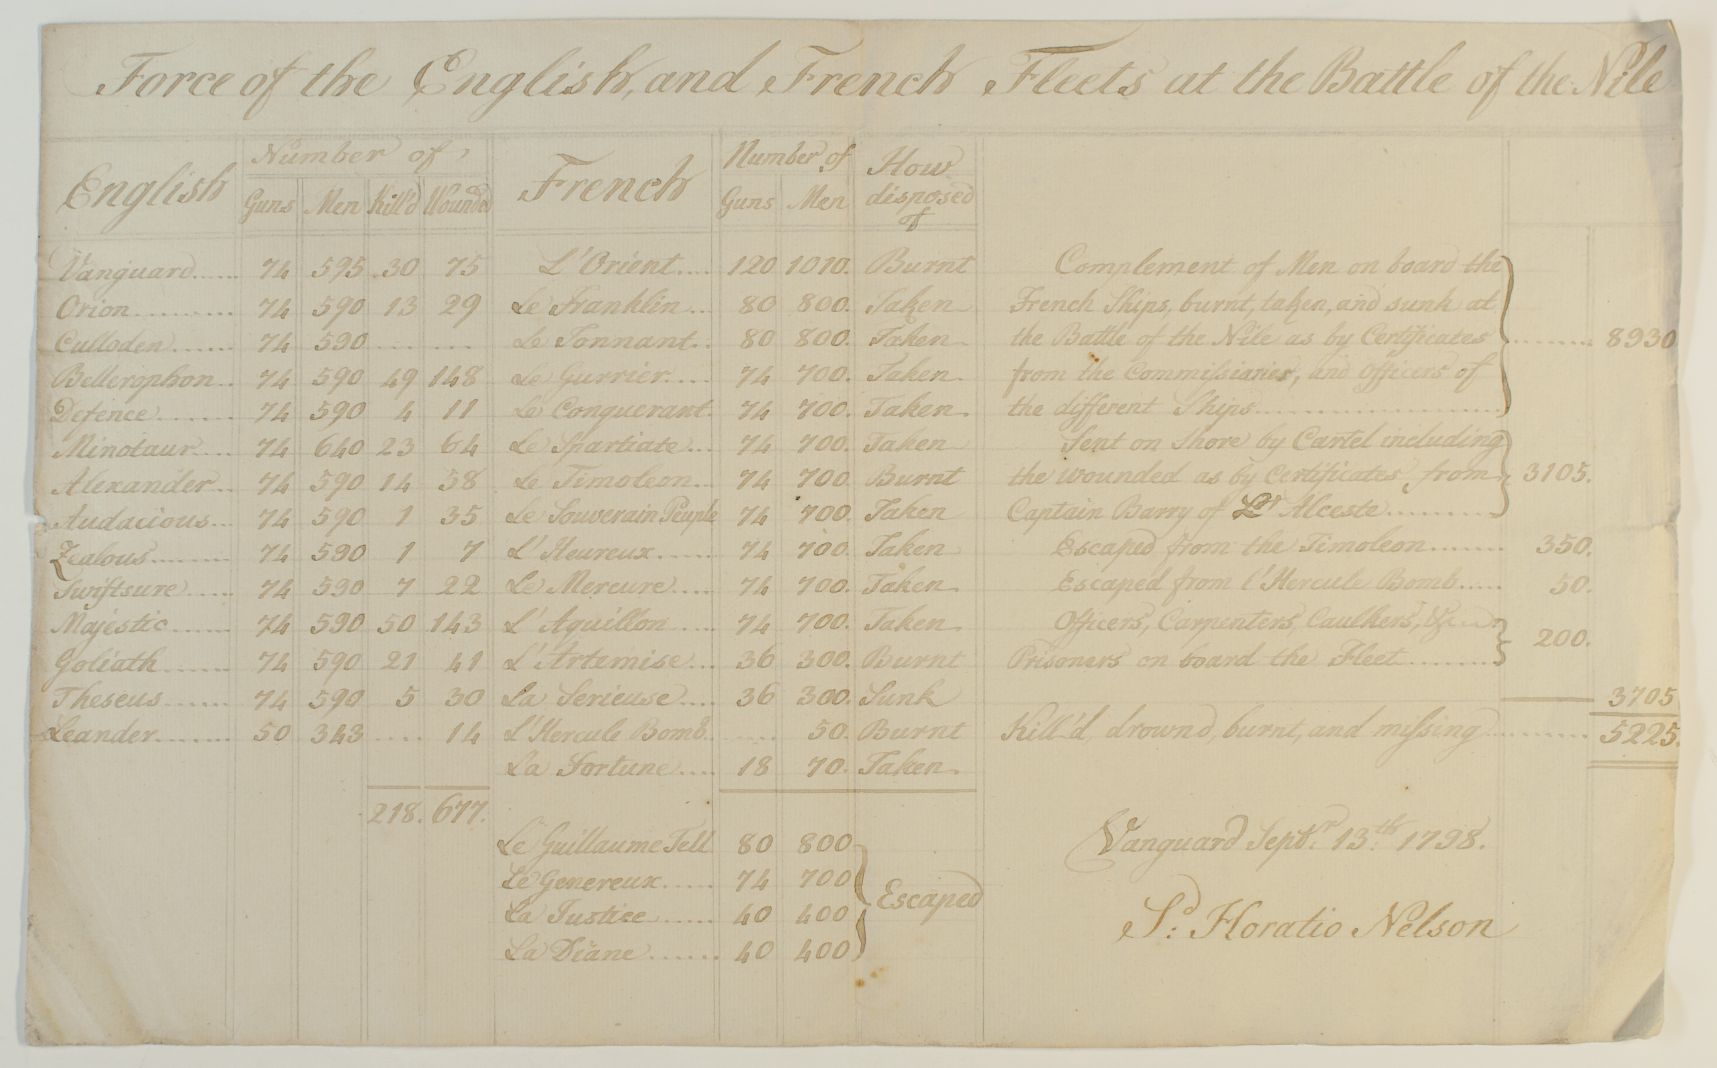 Force of the English, and French Fleets at the Battle of the Nile
English Number of French Number of How disposed of
Guns Men Kill'd Wounded Guns Men
Vanguard...... 74 595 30 75 L'Orient.... 120 1010. Burnt
Orion......... 74 590 13 29 Le Franklin... 80 800. Taken
Culloden...... 74 590 .... .... Le Tonnant.. 80 800. Taken
Bellerophon.. 74 590 49 148 Le Gurrier.... 74 700. Taken.
Defence....... 74 590 4 11 Le Conquerant. 74 700. Taken.
Minotaur.... 74 640 23 64 Le Spartiate... 74 700. Taken
Alexander.. 74 590 14 58 Le Timoleon... 74 700 Burnt
Audacious... 74 590 1 35 Le Souverain Peuple 74 700. Taken
Zealous....... 74 590 1 7 L'Heureux...... 74 700. Taken
Swiftsure..... 74 590 7 22 Le Mercure.... 74 700. Taken.
Majestic...... 74 590 50 143 L'Aquillon.... 74 700. Taken.
Goliath....... 74 590 21 41 L'Artemise... 36 300. Burnt
Theseus...... 74 590 5 30 La Serieuse.... 36 300. Sunk
Leander....... 50 343 .... 14 L'Hercule Bomb. .... 50. Burnt
La Fortune.... 18 70. Taken.
218. 677.
Le Guillaume Tell 80 800
Le Genereux..... 74 700
La Justice...... 40 400
La Diane...... 40 400
Escaped
Complement of Men on board the
French Ships, burnt, taken, and sunk at
the Battle of the Nile as by Certificates ........ 8930
from the Commissiaries, and Officers of
the different Ships....................
Sent on shore by Cartel including
the wounded as by Certificates from 3105.
Captain Barry of Alceste..........
Escaped from the Timoleon....... 350.
Escaped from l'Hercule Bomb..... 50.
Officers, Carpenters, Caulkers, &c
Prisoners on board the Fleet........ 200.
3705
Kill'd, drown'd, burnt, and missing.......... 5225.
Vanguard Septr. 13th. 1798.
Sd: Horatio Nelson